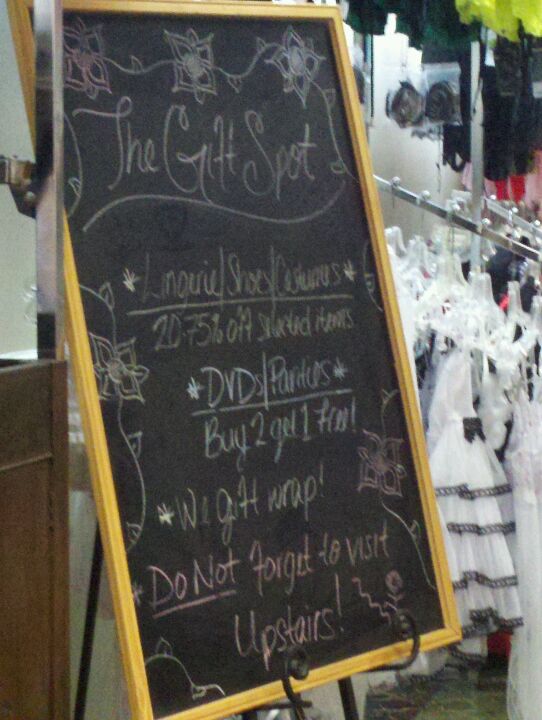 The Gift Spot
* Lingerie/Shoes/Costumes *
20-75% off selected items
* DVDs/Panties *
Buy 2 get 1 free!
* We gift wrap!
* Do Not forget to visit
Upstairs!